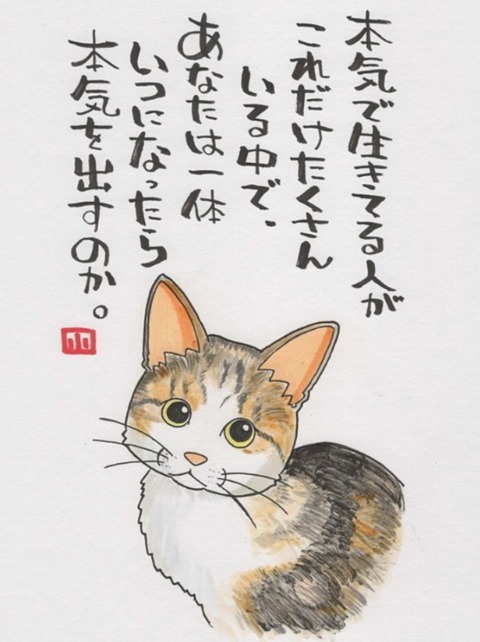 本気で生きてる人が
これだけたくさん
いる中で、
あなたは一体
いつになったら
本気を出すのか。